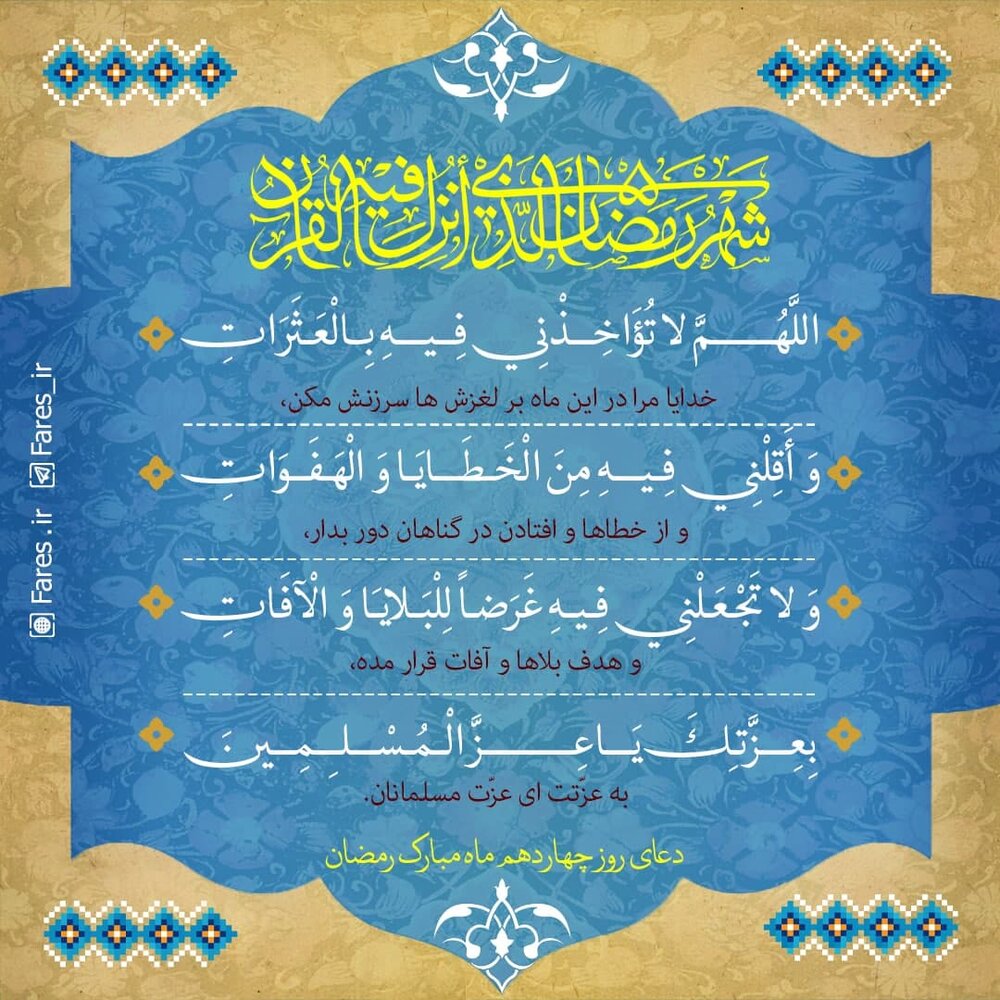 شَهْرُ رَمَضَانَ الَّذِي أُنْزِلَ فِيهِ الْقُرْآنُ
اللَّهُمَّ لا تُؤَاخِذْنِي فِيهِ بِالْعَثَرَاتِ
خدایا مرا در این ماه بر لغزش ها سرزنش مکن،
وَ أَقِلْنِي فِيهِ مِنَ الْخَطَايَا وَ الْهَفَوَاتِ
و از خطاها و افتادن در گناهان دور بدار،
وَ لا تَجْعَلْنِي فِيهِ غَرَضاً لِلْبَلايَا وَ الْآفَاتِ
و هدف بلاها و آفات قرار مده،
بِعِزَّتِكَ يَا عِزَّ الْمُسْلِمِينَ
به عزّتت ای عزّت مسلمانان.
دعای روز چهاردهم ماه مبارک رمضان
Fares .ir Fares_ir